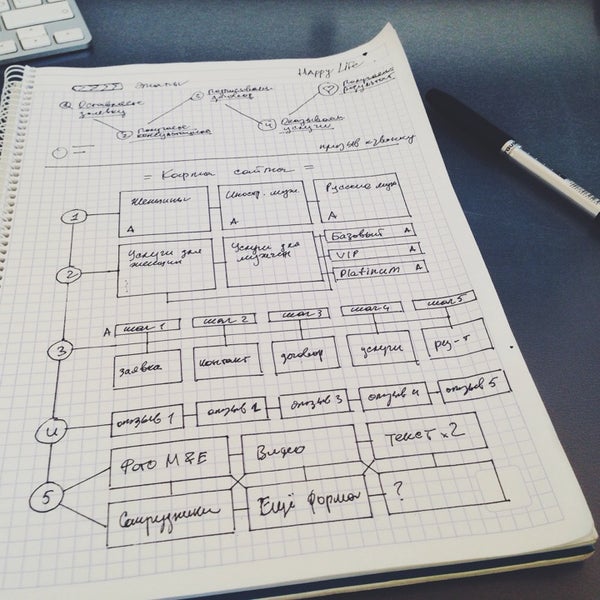 Happy Life
Этапы
1 Оставляете заявку
2 Получаете консультацию
3 Подписываем договор
4 Оказываем услуги
Получаете результат
призыв к звонку
= Карта сайта =
1
Женщины A
Иностр. муж A
Русские муж A
2
Услуги для женщин
Услуги для мужчин
Базовый A
VIP A
Platinum A
3
A шаг 1 шаг 2 шаг 3 шаг 4 шаг 5
заявка контакт договор услуги рез-т
4
отзыв 1 отзыв 2 отзыв 3 отзыв 4 отзыв 5
5
Фото M&E Видео текст x2
Сотрудники Ещё форма ?